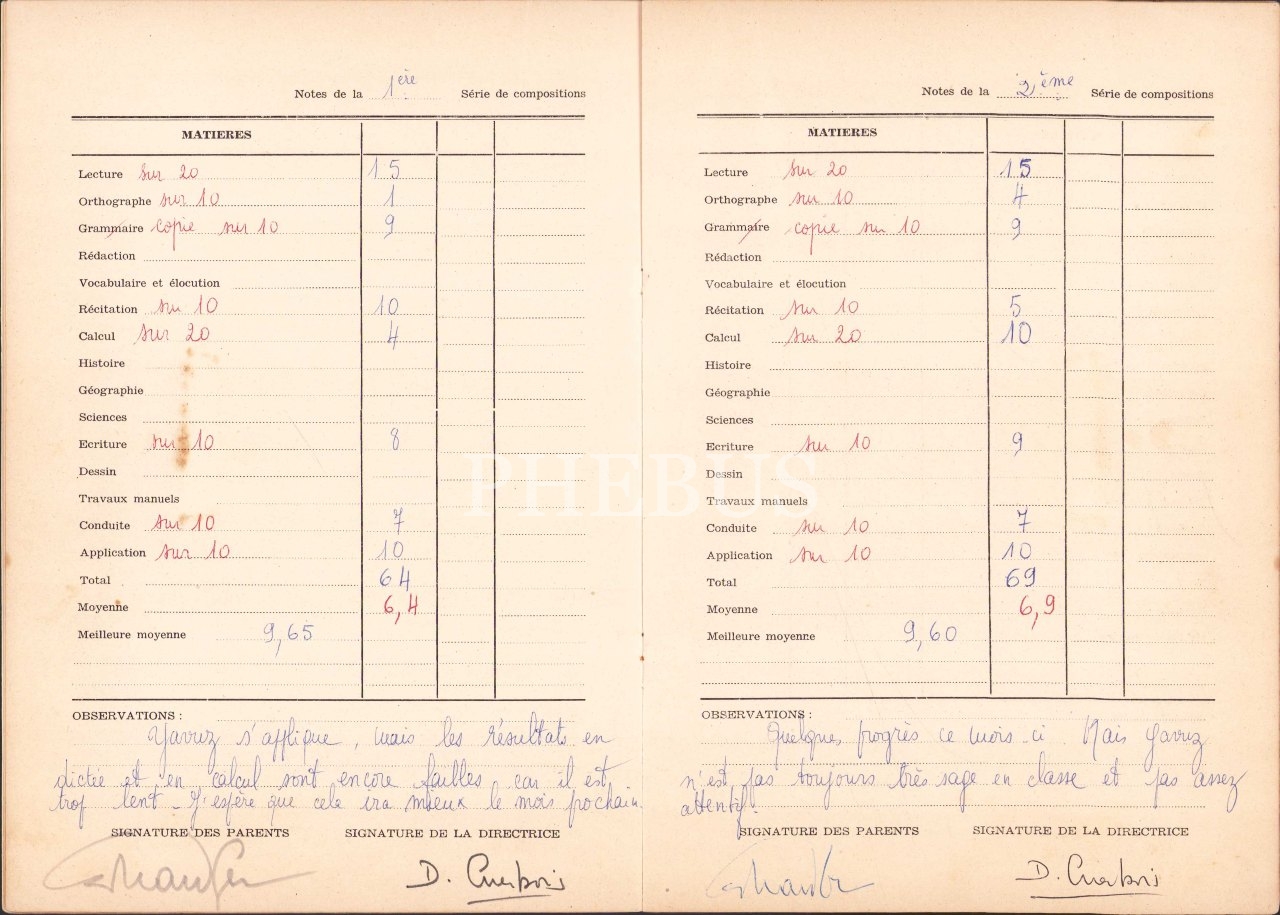 Notes de la 1ère Série de compositions
MATIERES
Lecture sur 20 15
Orthographe sur 10 1
Grammaire copie sur 10 9
Rédaction
Vocabulaire et élocution
Récitation sur 10 10
Calcul sur 20 4
Histoire
Géographie
Sciences
Ecriture sur 10 8
Dessin
Travaux manuels
Conduite sur 10 7
Application sur 10 10
Total 64
Moyenne 6,4
Meilleure moyenne 9,65
OBSERVATIONS :
Yavuz s'applique, mais les résultats en
dictée et en calcul sont encore faibles car il est
trop lent - J'espère que cela ira mieux le mois prochain.
SIGNATURE DES PARENTS SIGNATURE DE LA DIRECTRICE
D.
Notes de la 2ème Série de compositions
MATIERES
Lecture sur 20 15
Orthographe sur 10 4
Grammaire copie sur 10 9
Rédaction
Vocabulaire et élocution
Récitation sur 10 5
Calcul sur 20 10
Histoire
Géographie
Sciences
Ecriture sur 10 9
Dessin
Travaux manuels
Conduite sur 10 7
Application sur 10 10
Total 69
Moyenne 6,9
Meilleure moyenne 9,60
OBSERVATIONS :
Quelque progrès ce mois-ci Mais Yavuz
n'est pas toujours très sage en classe et pas assez
attentif.
SIGNATURE DES PARENTS SIGNATURE DE LA DIRECTRICE
D.
PHEBUS